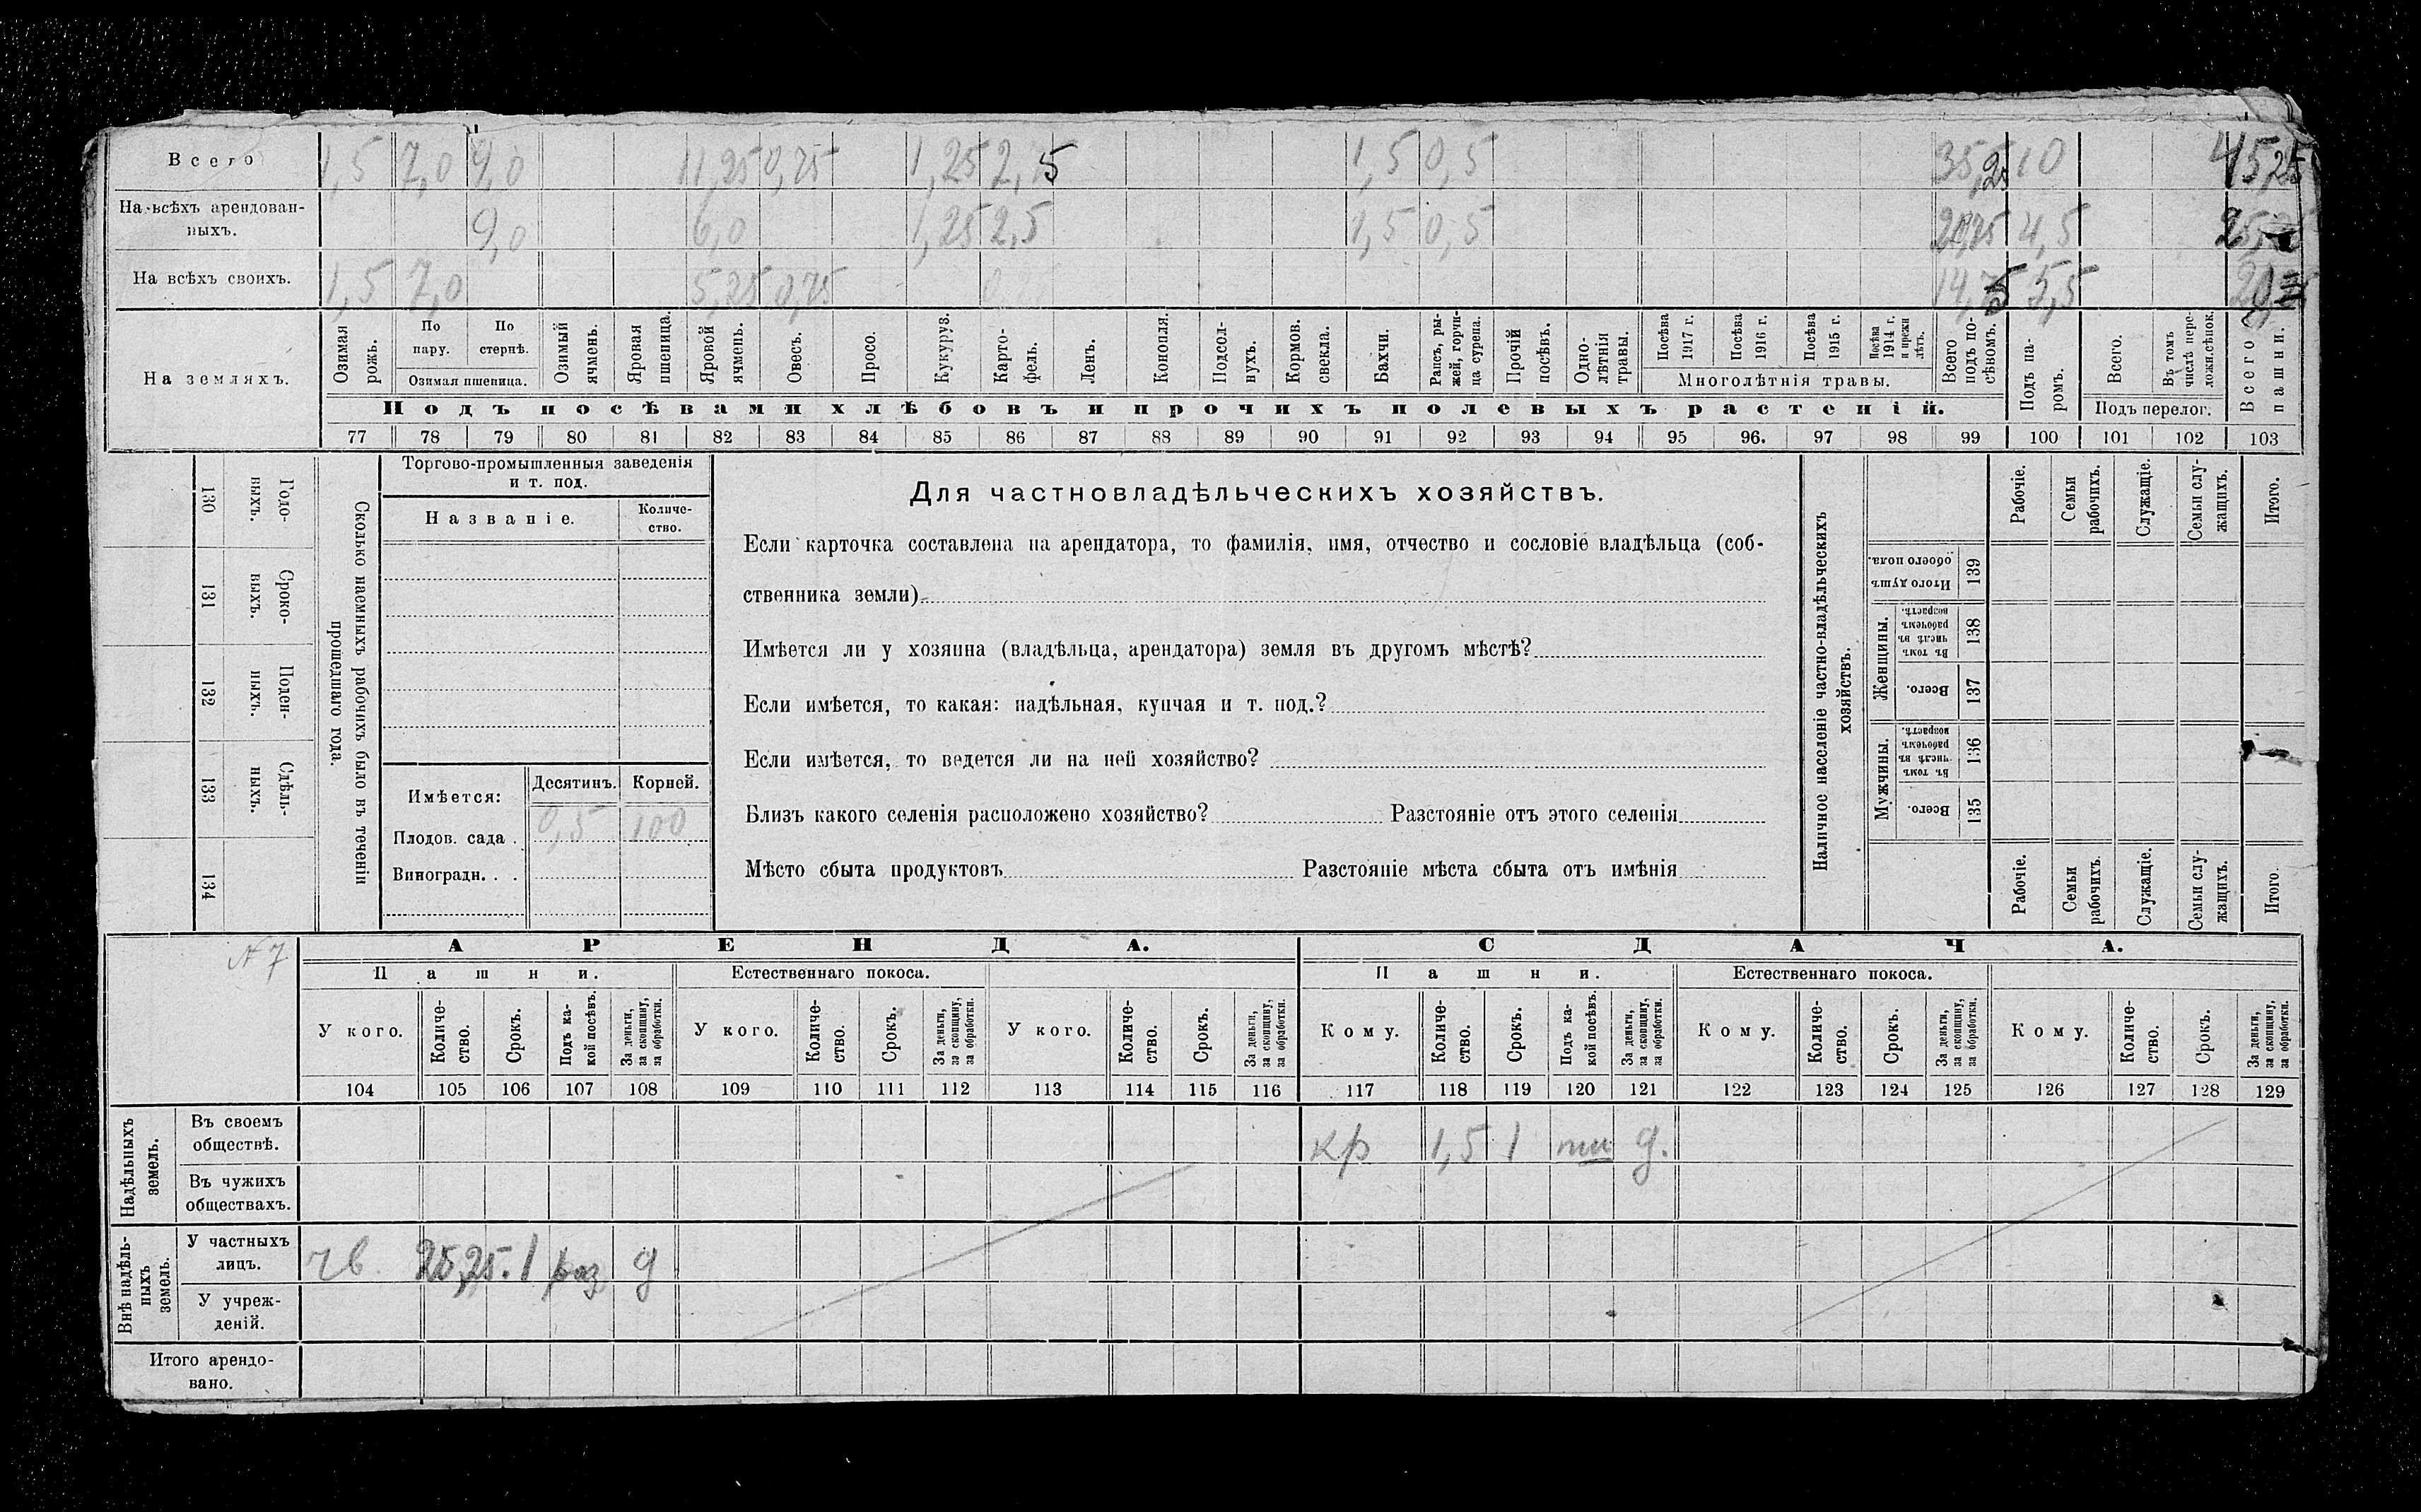 Всего 1,5 7,0 9,0 11,25 0,75 1,25 2,5 1,5 0,5 35,25 10 45,25
На всѣхъ арендован-
ныхъ. 9,0 6,0 1,25 2,5 1,5 0,5 4,5
На всѣхъ своихъ. 1,5 7,0 5,25 0,75 5,5
На земляхъ.
Озимая рожь.
По пару.
По стернѣ.
Озимая пшеница.
Озимый ячмень.
Яровая пшеница.
Яровой ячмень.
Овесъ.
Просо.
Кукуруз.
Карто-
фель.
Ленъ.
Конопля.
Подсол-
нухъ.
Кормов. свекла.
Бахчи.
Рапсъ, ры-
жей, горчи-
ца сурепа.
Прочій посѣвъ.
Одно-
лѣтнія травы.
Посѣва 1917 г.
Посѣва 1916 г.
Посѣва 1915 г.
Посѣва 1914 г. и прежн лѣтъ.
Многолѣтнія травы.
Всего подъ по-
сѣвомъ.
Подъ па-
ромъ.
Всего.
Въ томъ числѣ пере-
ложн.сѣнок.
Подъ перелог.
Всего пашни.
Подъ посѣвами хлѣбовъ и прочихъ полевыхъ растеній.
77 78 79 80 81 82 83 84 85 86 87 88 89 90 91 92 93 94 95 96. 97 98 99 100 101 102 103
130 Годо-
ныхъ.
131 Сроко-
выхъ.
132 Поден-
ныхъ.
133 Сдѣль-
ныхъ.
134
Сколько наемныхъ рабочихъ было въ теченіи
прошедшаго года.
Торгово-промышленныя заведенія
и т. под.
Названіе.
Количе-
ство.
Имѣется: Десятинъ. Корней.
Плодов. сада . 0,5 100
Виноградн. . .
Для частновладѣльческихъ хозяйствъ.
Если карточка составлена на арендатора, то фамилія, имя, отчество и сословіе владѣльца (соб-
ственника земли)
Имѣется ли у хозяина (владѣльца, арендатора) земля въ другомъ мѣстѣ?
Если имѣется, то какая: надѣльная, купчая и т. под.?
Если имѣется, то ведется ли на ней хозяйство?
Близъ какого селенія расположено хозяйство? Разстояніе отъ этого селенія
Мѣсто сбыта продуктовъ Разстояніе мѣста сбыта отъ имѣнія
Наличное населеніе частно-владѣльческихъ
хозяйствъ.
Рабочіе.
Семьи рабочихъ.
Служащіе.
Семьи слу-
жащихъ.
Итого.
Итого душъ обоего пола. 139
Женщины.
Въ томъ числѣ въ рабочемъ возрастѣ. 138
Всего. 137
Мужчины.
Въ томъ числѣ въ рабочемъ возрастѣ. 136
Всего. 135
Рабочіе.
Семьи рабочихъ.
Служащіе.
Семьи слу-
жащихъ.
Итого.
№ 7
АРЕНДА. СДАЧА.
Пашни. Естественнаго покоса. Пашни. Естественнаго покоса.
У кого.
Количе-
ство.
Срокъ.
Подъ ка-
кой посѣвъ.
За деньги,
за скопщину,
за обработки.
У кого.
Количе-
ство.
Срокъ.
За деньги,
за скопщину,
за обработки.
У кого.
Количе-
ство.
Срокъ.
За деньги,
за скопщину,
за обработки.
Кому.
Количе-
ство.
Срокъ.
Подъ ка-
кой посѣвъ.
За деньги,
за скопщину,
за обработки.
Кому.
Количе-
ство.
Срокъ.
За деньги,
за скопщину,
за обработки.
Кому.
Количе-
ство.
Срокъ.
За деньги,
за скопщину,
за обработки.
104 105 106 107 108 109 110 111 112 113 114 115 116 117 118 119 120 121 122 123 124 125 126 127 128 129
Надѣльныхъ
земель.
Въ своемъ
обществѣ. кр 1,5 1 д.
Въ чужихъ
обществахъ.
Внѣ надѣль-
ныхъ
земель.
У частныхъ
лицъ. чв 25,25. 1 раз д
У учреж-
деній.
Итого арендо-
вано.